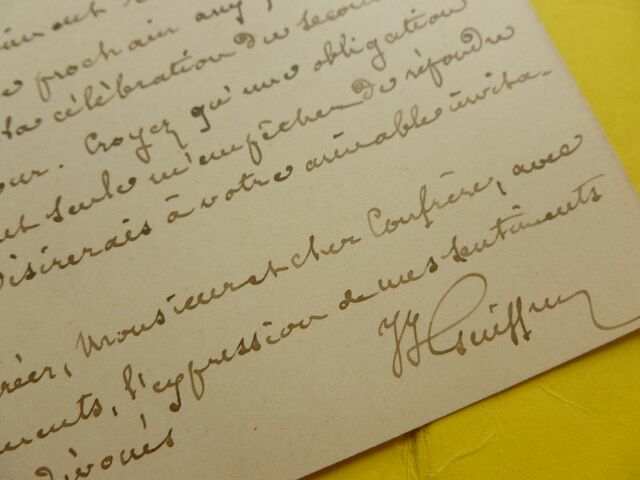 prochain
la célébration du second
our. Croyez qu'une obligation
seule m'empêcher de répondre
désirerais à votre aimable invita-
réer, Monsieur et cher Confrère, avec
ments, l'expression de mes sentiments
dévoués
JJ Guiffrey